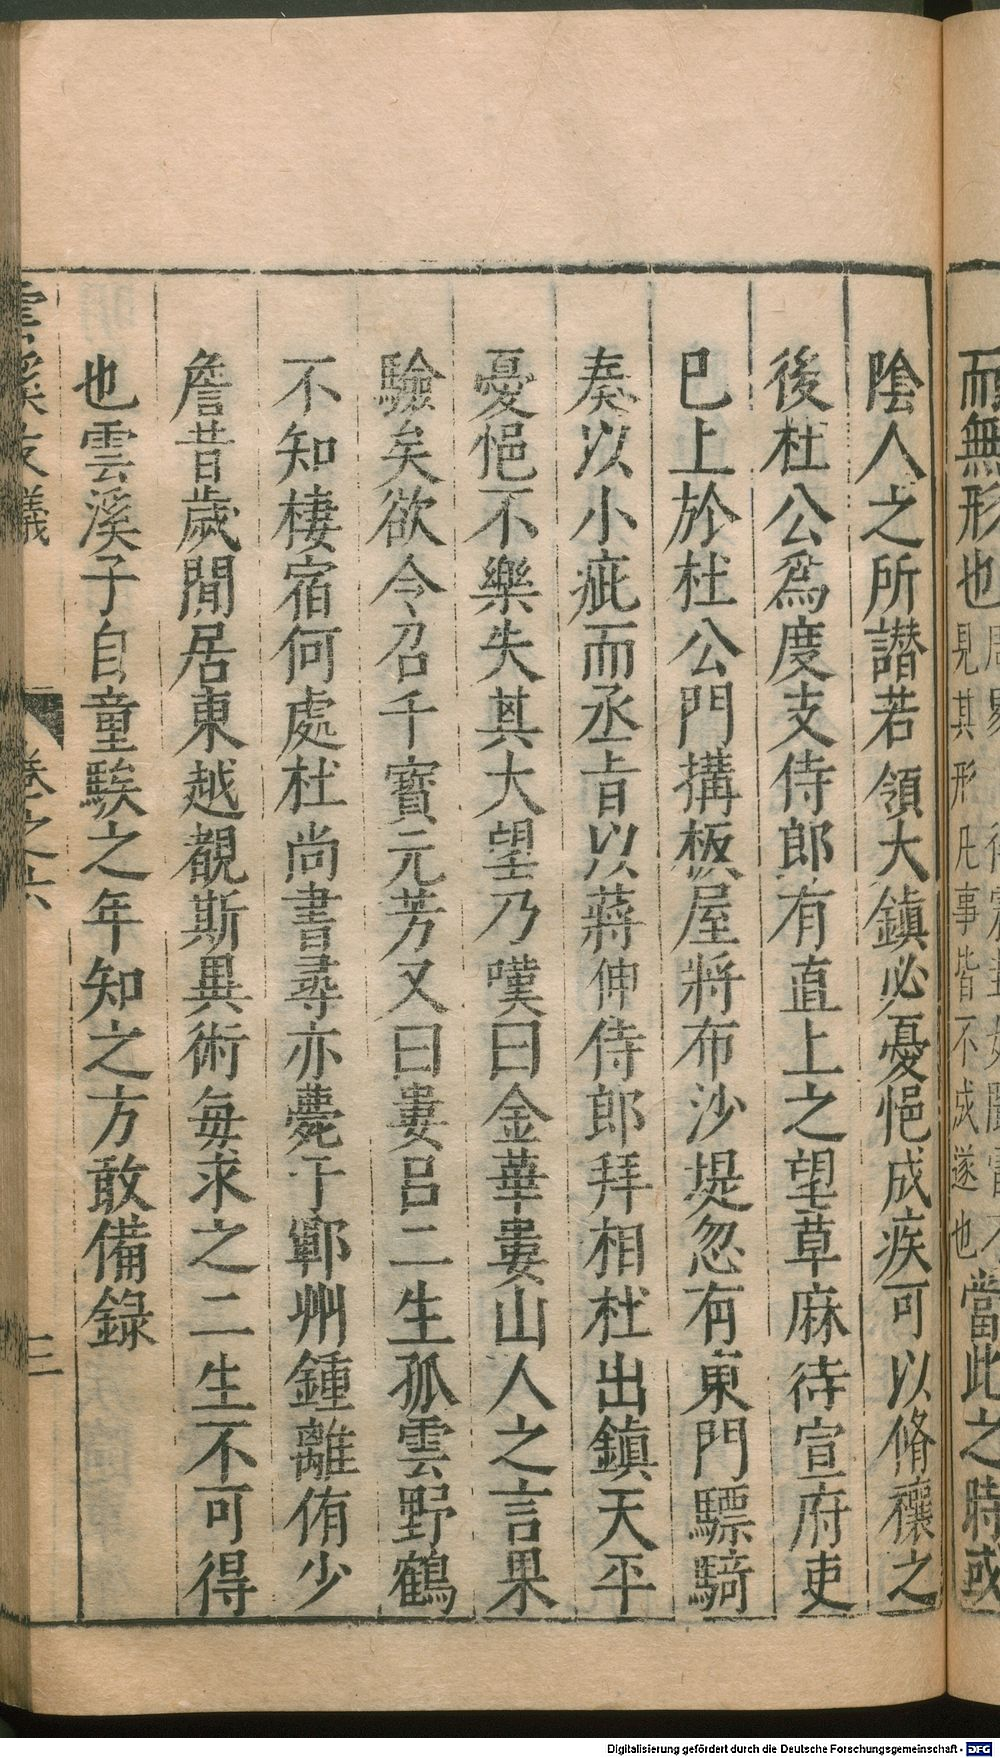 而無形也
見其形凡事皆不成遂也
當此之時或
陰人之所譖若領大鎮必憂悒成疾可以脩禳之
後杜公爲度支侍郎有直上之望草麻待宣府吏
巳上於杜公門搆板屋將布沙堤忽有東門驃騎
奏以小疵而丞㫖以蔣伸侍郎拜相杜出鎮天平
憂悒不樂失其大望乃嘆曰金華婁山人之言果
驗矣欲令召千寳元芳又曰婁呂二生孤雲野鶴
不知棲宿何處杜尚書尋亦薨于鄆州鍾離侑少
詹昔歲閒居東越覩斯異術每求之二生不可得
也雲溪子自童騃之年知之方敢備錄
雲溪友議
卷之六
三
Digitalisierung gefördert durch die Deutsche Forschungsgemeinschaft - DFG